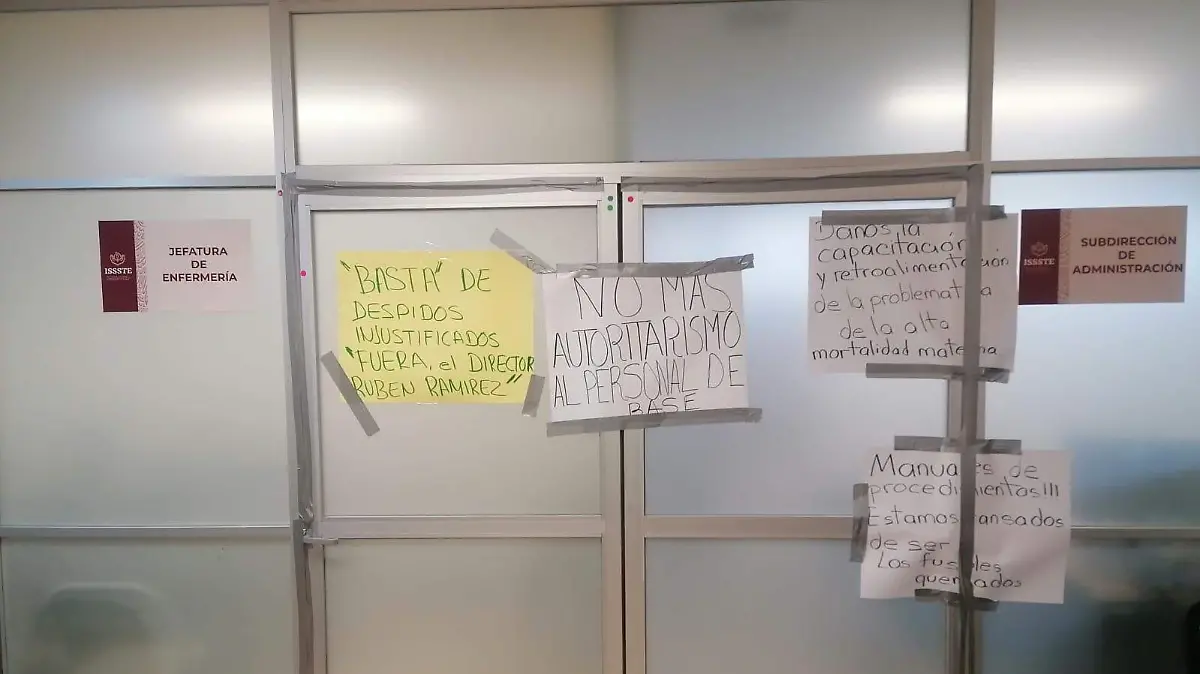 ISSSTE
JEFATURA
DE
ENFERMERÍA
"BASTA" DE
DESPIDOS
INJUSTIFICADOS
"FUERA, el DIRECTOR
RUBEN RAMIREZ"
NO MAS
AUTORITARISMO
AL PERSONAL DE
BASE
Danos la
capacitación
y retroalimentación
de la problematica
de la alta
mortalidad materna
ISSSTE
SUBDIRECCIÓN
DE
ADMINISTRACIÓN
Manuales de
procedimientos!!!
Estamos cansados
de ser
Los fusibles
quemados